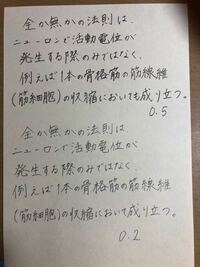 全か無かの法則は、
ニューロンで活動電位が
発生する際のみではなく、
例えば1本の骨格筋の筋線維
(筋細胞)の収縮においても成り立つ。
0.5
全か無かの法則は
ニューロンで活動電位が
発生する際のみではなく、
例えば1本の骨格筋の筋線維
(筋細胞)の収縮においても成り立つ。
0.2